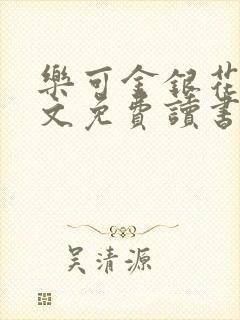 樂可金銀花
文免費讀書
吳清源